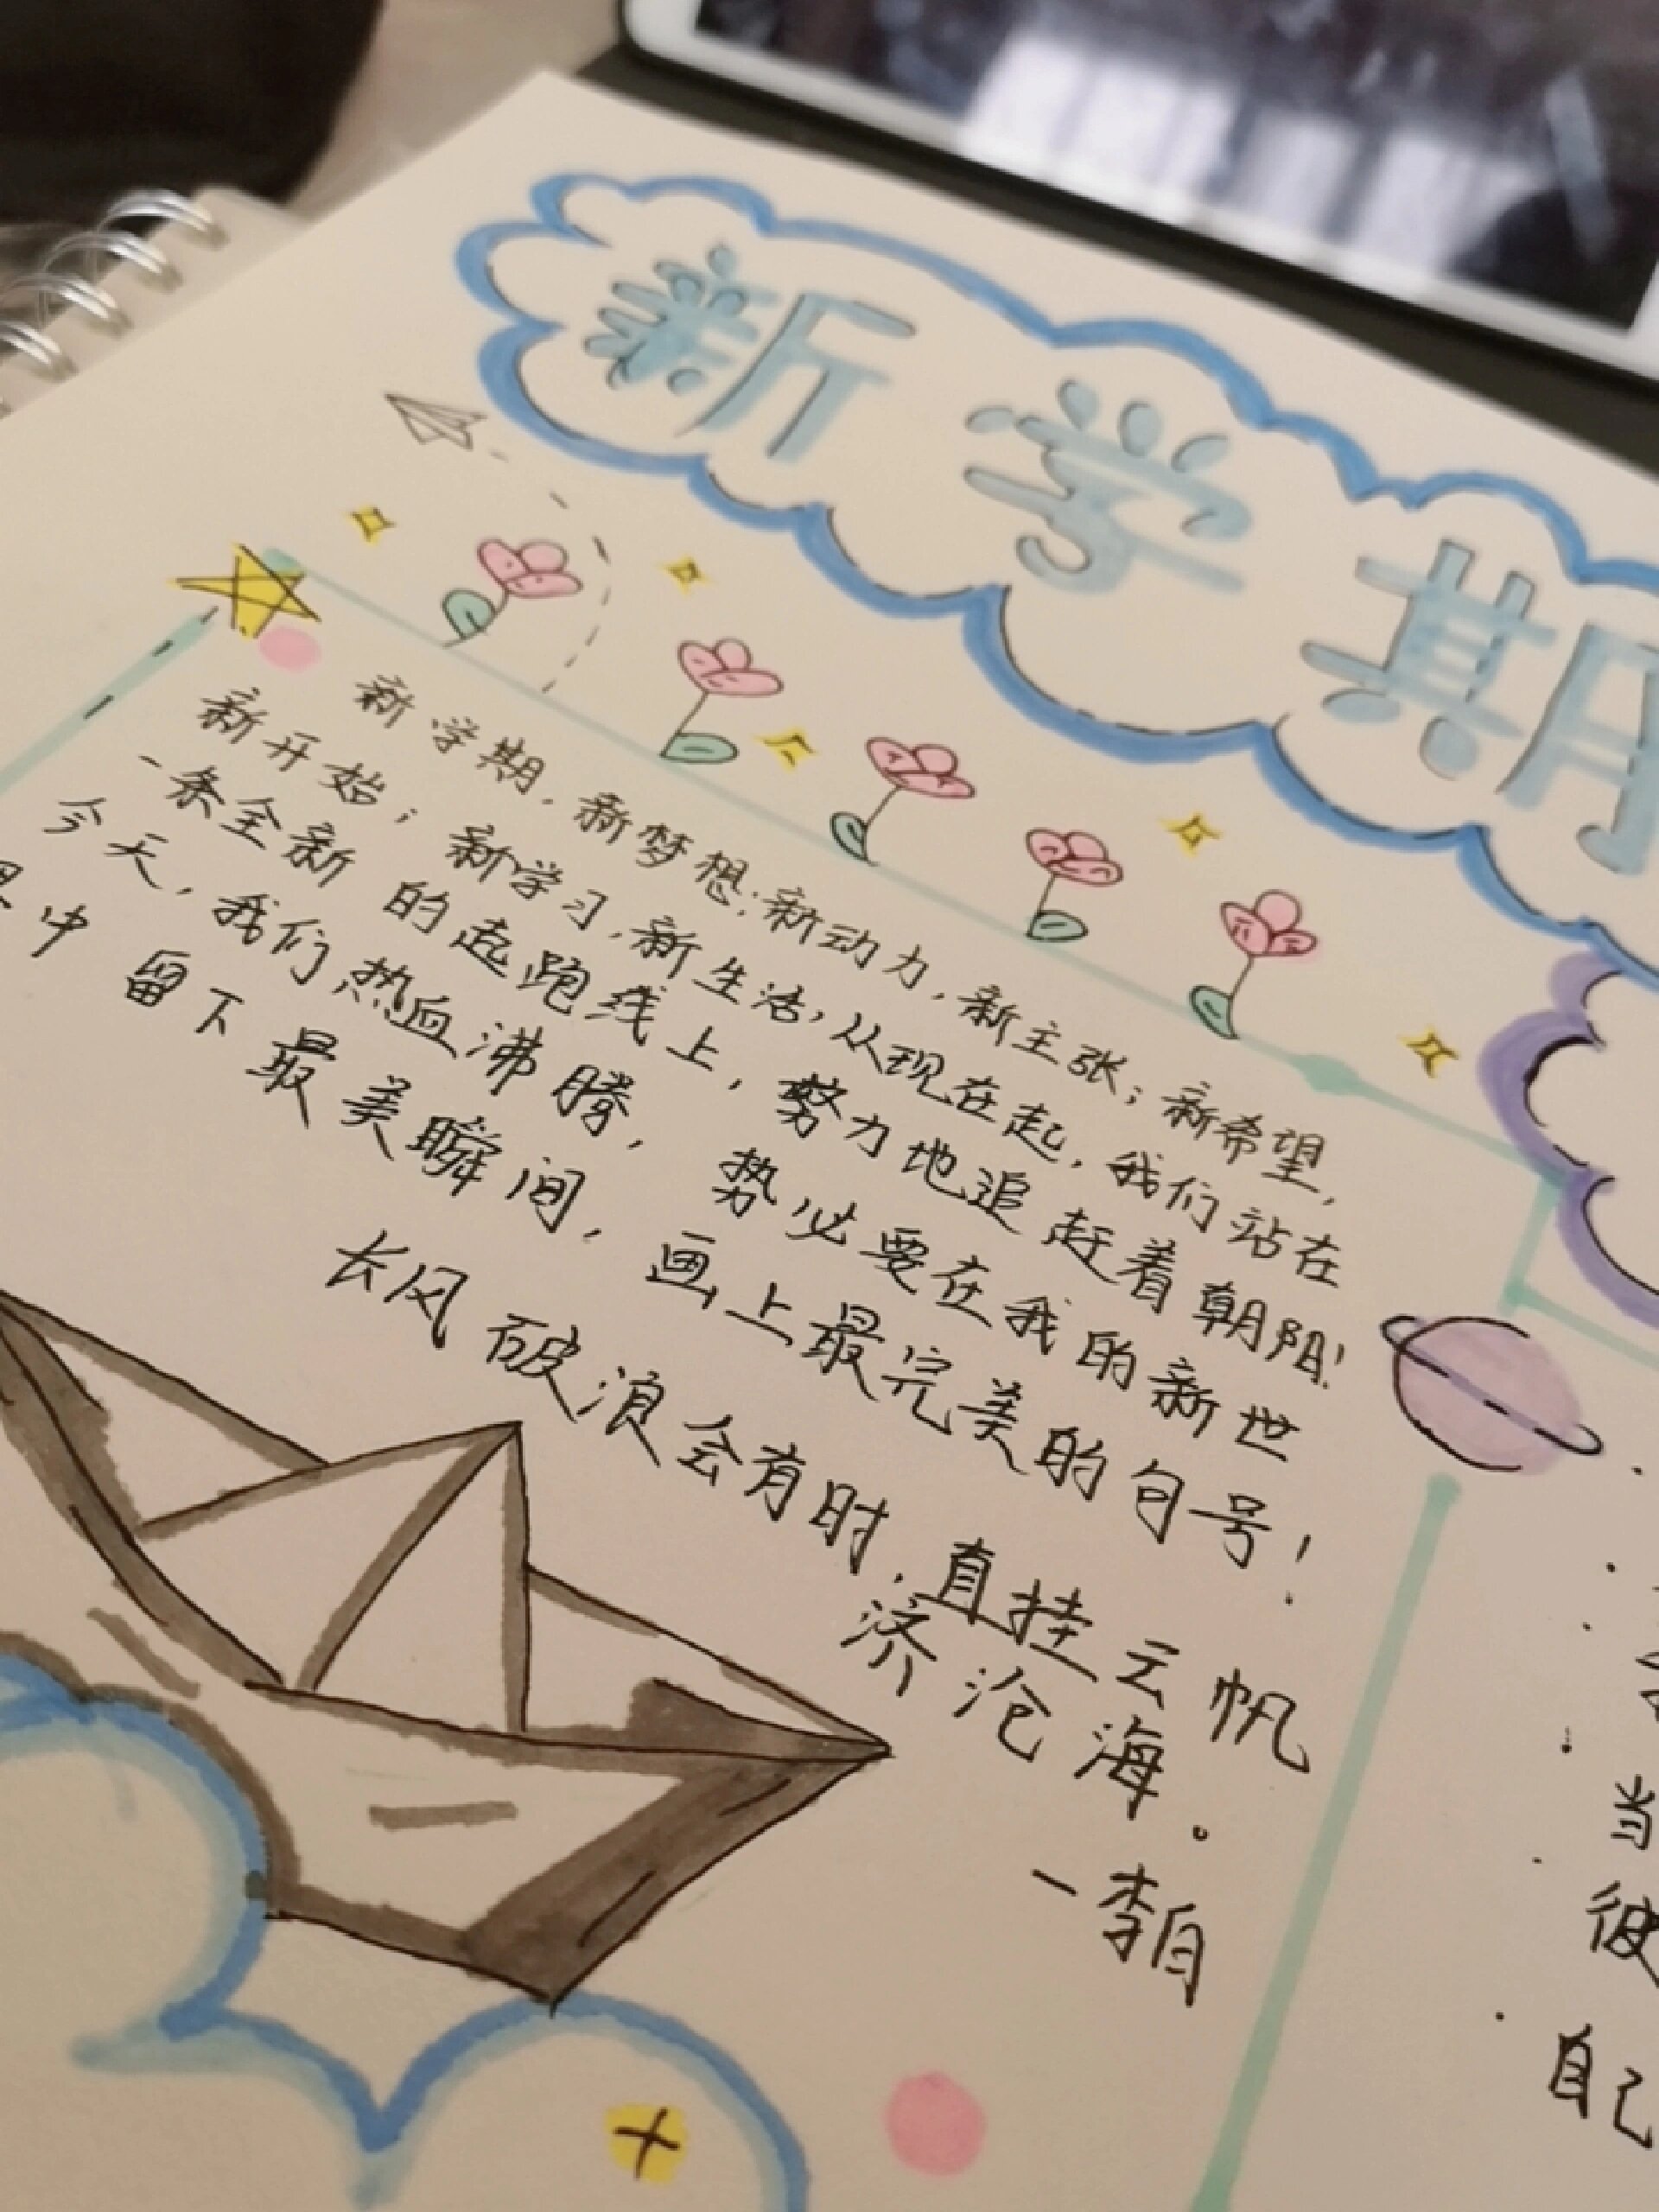 新学期
新学期，新梦想；新动力，新主张；新希望，
新开始；新学习，新生活，从现在起，我们站在
一条全新的起跑线上，努力地追赶着朝阳！
今天，我们热血沸腾，势必要在我的新世
界中留下最美瞬间，画上最完美的句号！
长风破浪会有时，直挂云帆
济沧海。
-李白
当
彼
自己